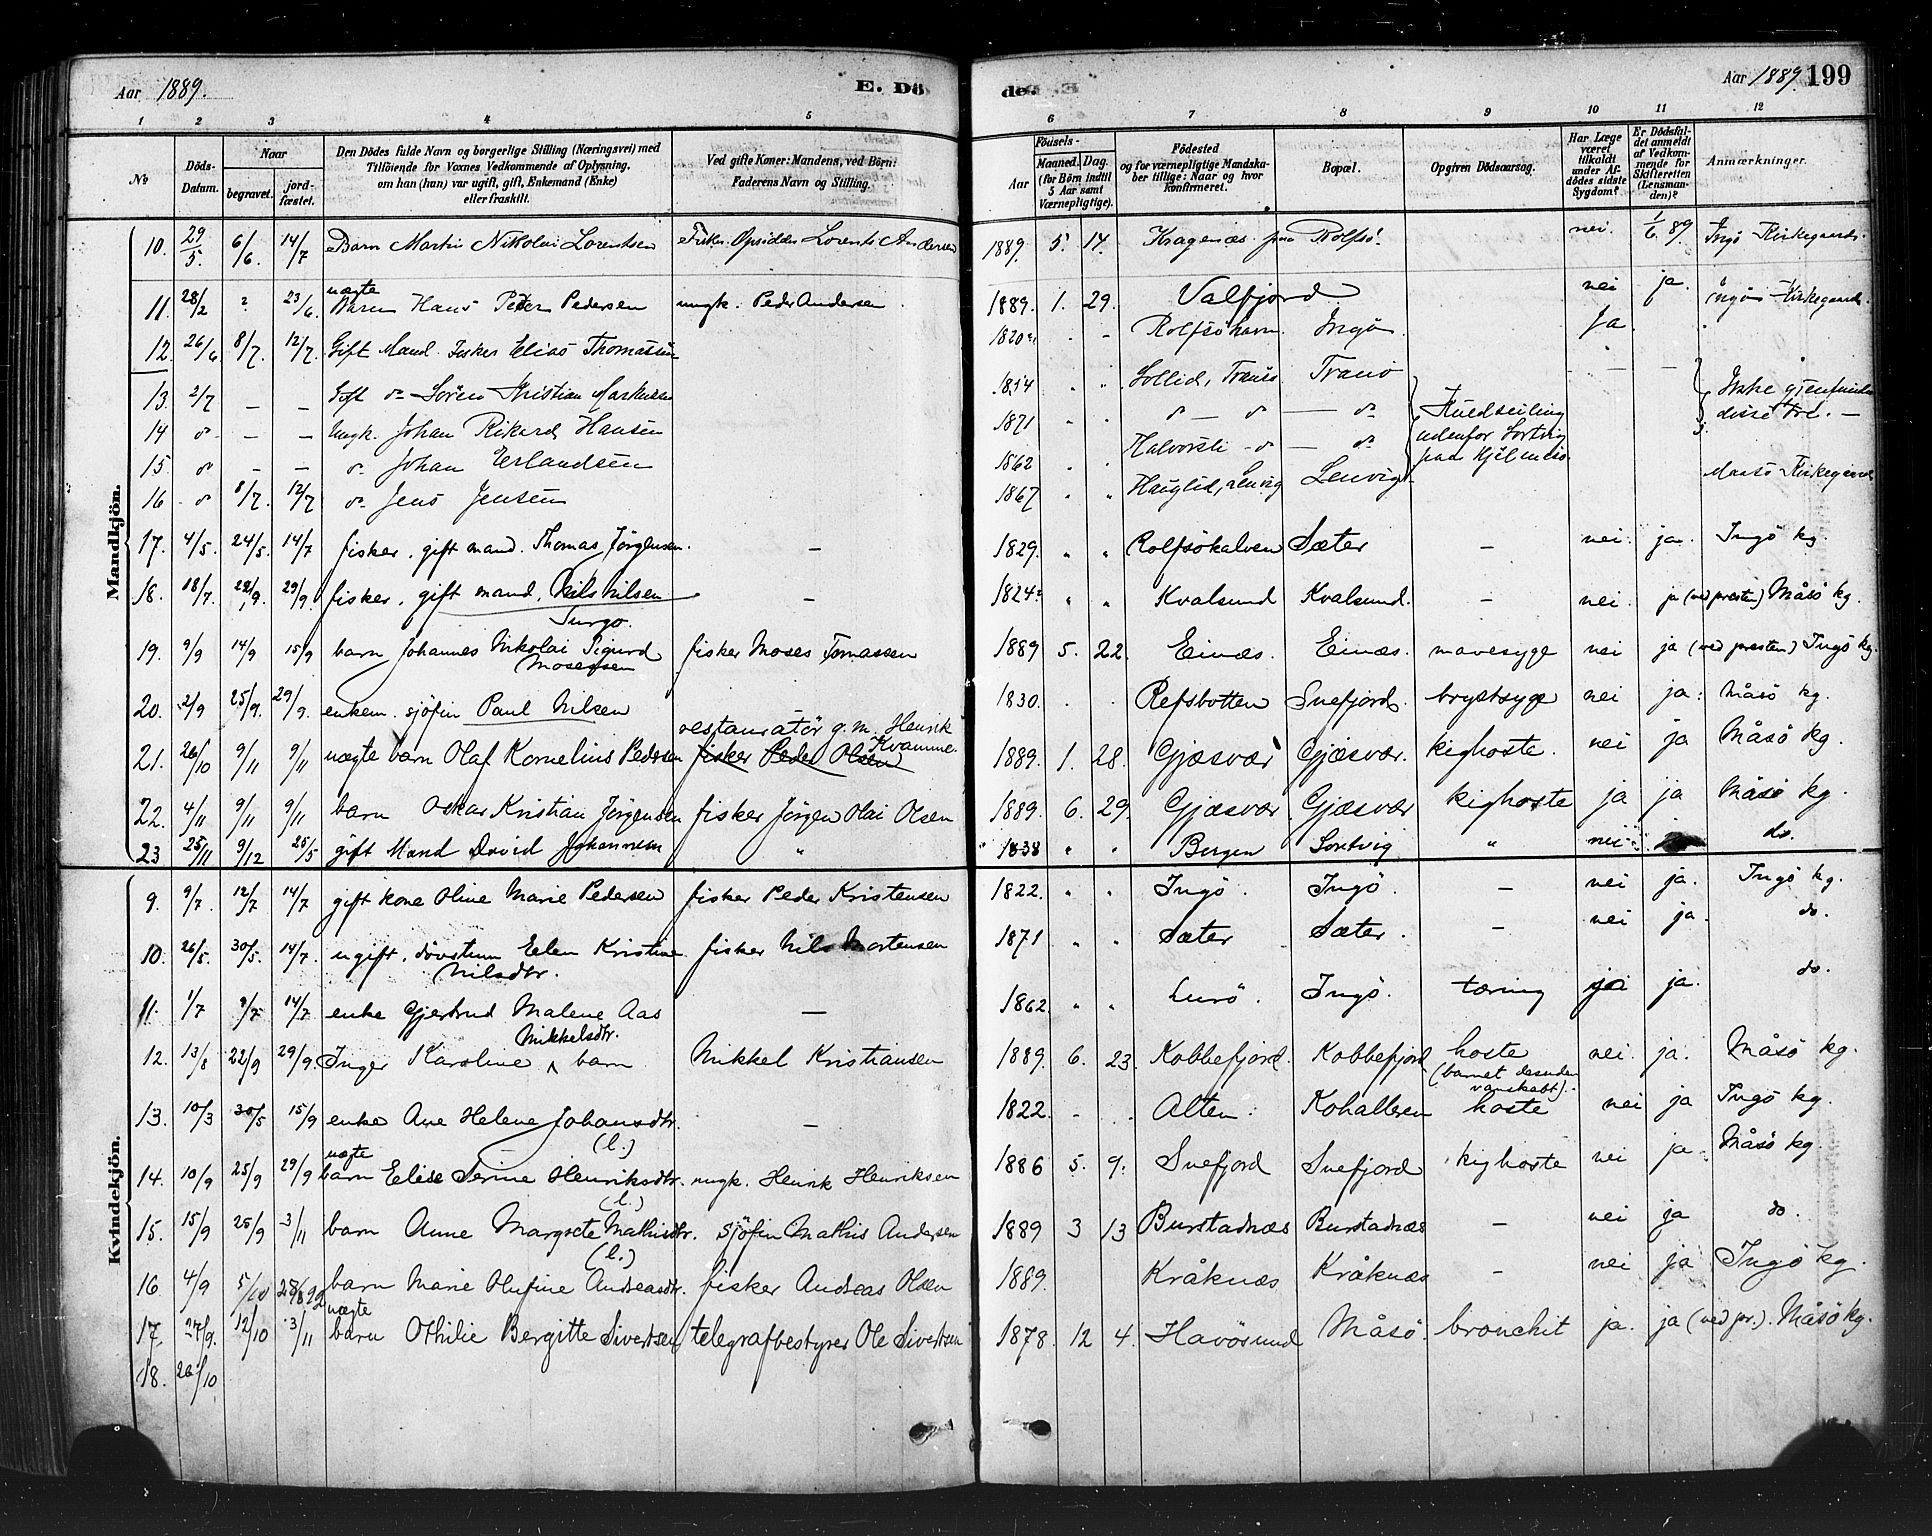 Aar 1889.
E. Döde.
Aar 1889. 199
1 2 3 4 5 6 7 8 9 10 11 12
No
Döds-Datum.
Naar
begravet.
jord-fæstet.
Den Dödes fulde Navn og borgerlige Stilling (Næringsvei) med
Tilföiende for Voxnes Vedkommende af Oplysning.
om han (hun) var ugift, gift, Enkemand (Enke)
eller fraskilt.
Ved gifte Koner: Mandens, ved Börn:
Faderens Navn og Stilling.
Födsels-
Aar
Maaned. Dag.
(for Börn indtil
5 Aar samt
Værnepligtige).
Födested
og for værnepligtige Mandska-
ber tillige: Naar og hvor
konfirmeret.
Bopæl.
Opgiven Dödsaarsag.
Har Læge
været
tilkaldt
under Af-
dödes sidste
Sygdom?
Er Dödsfal-
det anmeldt
af Vedkom-
mende for
Skifteretten
(Lensman-
den)?
Anmærkninger.
Mandkjön.
10. 29/5. 6/6. 14/7 Barn Martin Nikolai Lorentsen Lorents Andersen 1889. 5. 14. Kragenæs paa Rolfsö. nei. 1/6 89. Ingö Kirkegaard.
11. 28/2 ? 23/6. uægte Barn Hans Peter Pedersen ungk. Peder Andersen. 1889. 1. 29. Valfjord nei ja. Ingö Kirkegaard.
12. 26/6 8/7. 12/7. Gift Mand. Fisker Elias Thomassen 1820 Rolfsöhavn. Ingö. Ja.
13. 2/7 — — Gift do Sören Kristian 1854 Sollid, Tranö Tranö Ikke gjenfundne
14 do — — Ungk. Johan Rikard Hansen 1871 do — do — do Kuldseiling disse tre. —
15. do — — do Johan Erlandsen 1862 Halvorsli - do — do udenfor Sortvig
16 do 8/7. 12/7 do Jens Jensen 1867 Hauglid, Lenvig Lenvig paa Hjelmsö. Maasö Kirkegaard
17. 4/5. 24/5. 14/7 fisker, gift mand. Thomas Jörgensen. — 1829. Rolfsökalven Sæter — nei. ja. Ingö kg.
18. 18/7. 22/9. 29/9. fisker, gift mand, Nils Nilsen — 1824 Kvalsund Kvalsund. — nei. ja (ved presten) Måsö kg.
Surgo.
19. 9/9 14/9 15/9 barn Johannes Nikolai Sigurd fisker Moses Tomassen 1889 5. 22. Einæs. Einæs. mavesyge nei ja (ved presten) Ingö kg.
Mosessen
20. 2/9 25/9. 29/9. enkem. sjöfin Paul Nilsen 1830. Refsbotten Snefjord. brystsyge nei ja. Måsö kg.
restauratör g.m. Henrik Kvamme.
21. 26/10 9/11 9/11 uægte barn Olaf Kornelius Pedersen fisker Peder Olsen 1889. 1. 28. Gjæsvær Gjæsvær. kighoste. nei ja Måsö kg.
22. 4/11 9/11 9/11 barn Oskar Kristian Jörgensen fisker Jörgen Olai Olsen 1889. 6. 29. Gjæsvær. Gjæsvær kighoste ja ja Måsö kg.
23 25/11 9/12 25/5 gift Mand David Johannesen " 1838 Bergen Sortvig " nei do.
Kvindekjön.
9. 9/7. 12/7 14/7 gift kone Oline Marie Pedersen fisker Peder Kristensen 1822. Ingö. Ingö. — nei ja. Ingö kg.
10. 26/5. 30/5. 14/7. ugift, dövstum Elen Kristine fisker Nils Mortensen 1871 Sæter Sæter. — nei ja. do.
Nilsdtr.
11. 1/7 9/7 14/7 enke Gjertrud Malene Aas — 1862. Lurö. Ingö. tæring ja ja. do.
12. 13/8 22/9 29/9. Inger Karoline Mikkelsdtr. barn Mikkel Kristiansen 1889. 6. 23. Kobbefjord. Kobbefjord hoste nei. ja. Måsö kg.
(barnet desuden vanskabt).
13. 10/3 30/5 15/9 enke Ane Helene Johansdtr. — 1822. Alten. Kohalleren hoste nei ja Ingö kg.
(l.)
14. 10/9 25/9 29/9 uægte barn Elise Serine Henriksdtr. ungk. Henrik Henriksen 1886 5. 9. Snefjord Snefjord kighoste nei ja. Måsö kg.
(l.)
15. 15/9 25/9 3/11 barn Anne Margrete Mathisdtr. sjöfin Mathis Andersen 1889 3 13 Burstadnæs Burstadnæs — nei ja do.
(l.)
16 4/9 5/10 barn Marie Olufine Andreasdtr. fisker Andreas Olsen 1889. Kråknæs Kråknæs — nei ja Ingö kg.
17. 27/9. 12/10 3/11 uægte barn Othilie Bergitte Sivertsen telegrafbestyrer Ole Sivertsen 1878. 12 4. Havösund Måsö. bronchit ja. ja (ved pr.). Måsö kg.
18. 26/10.